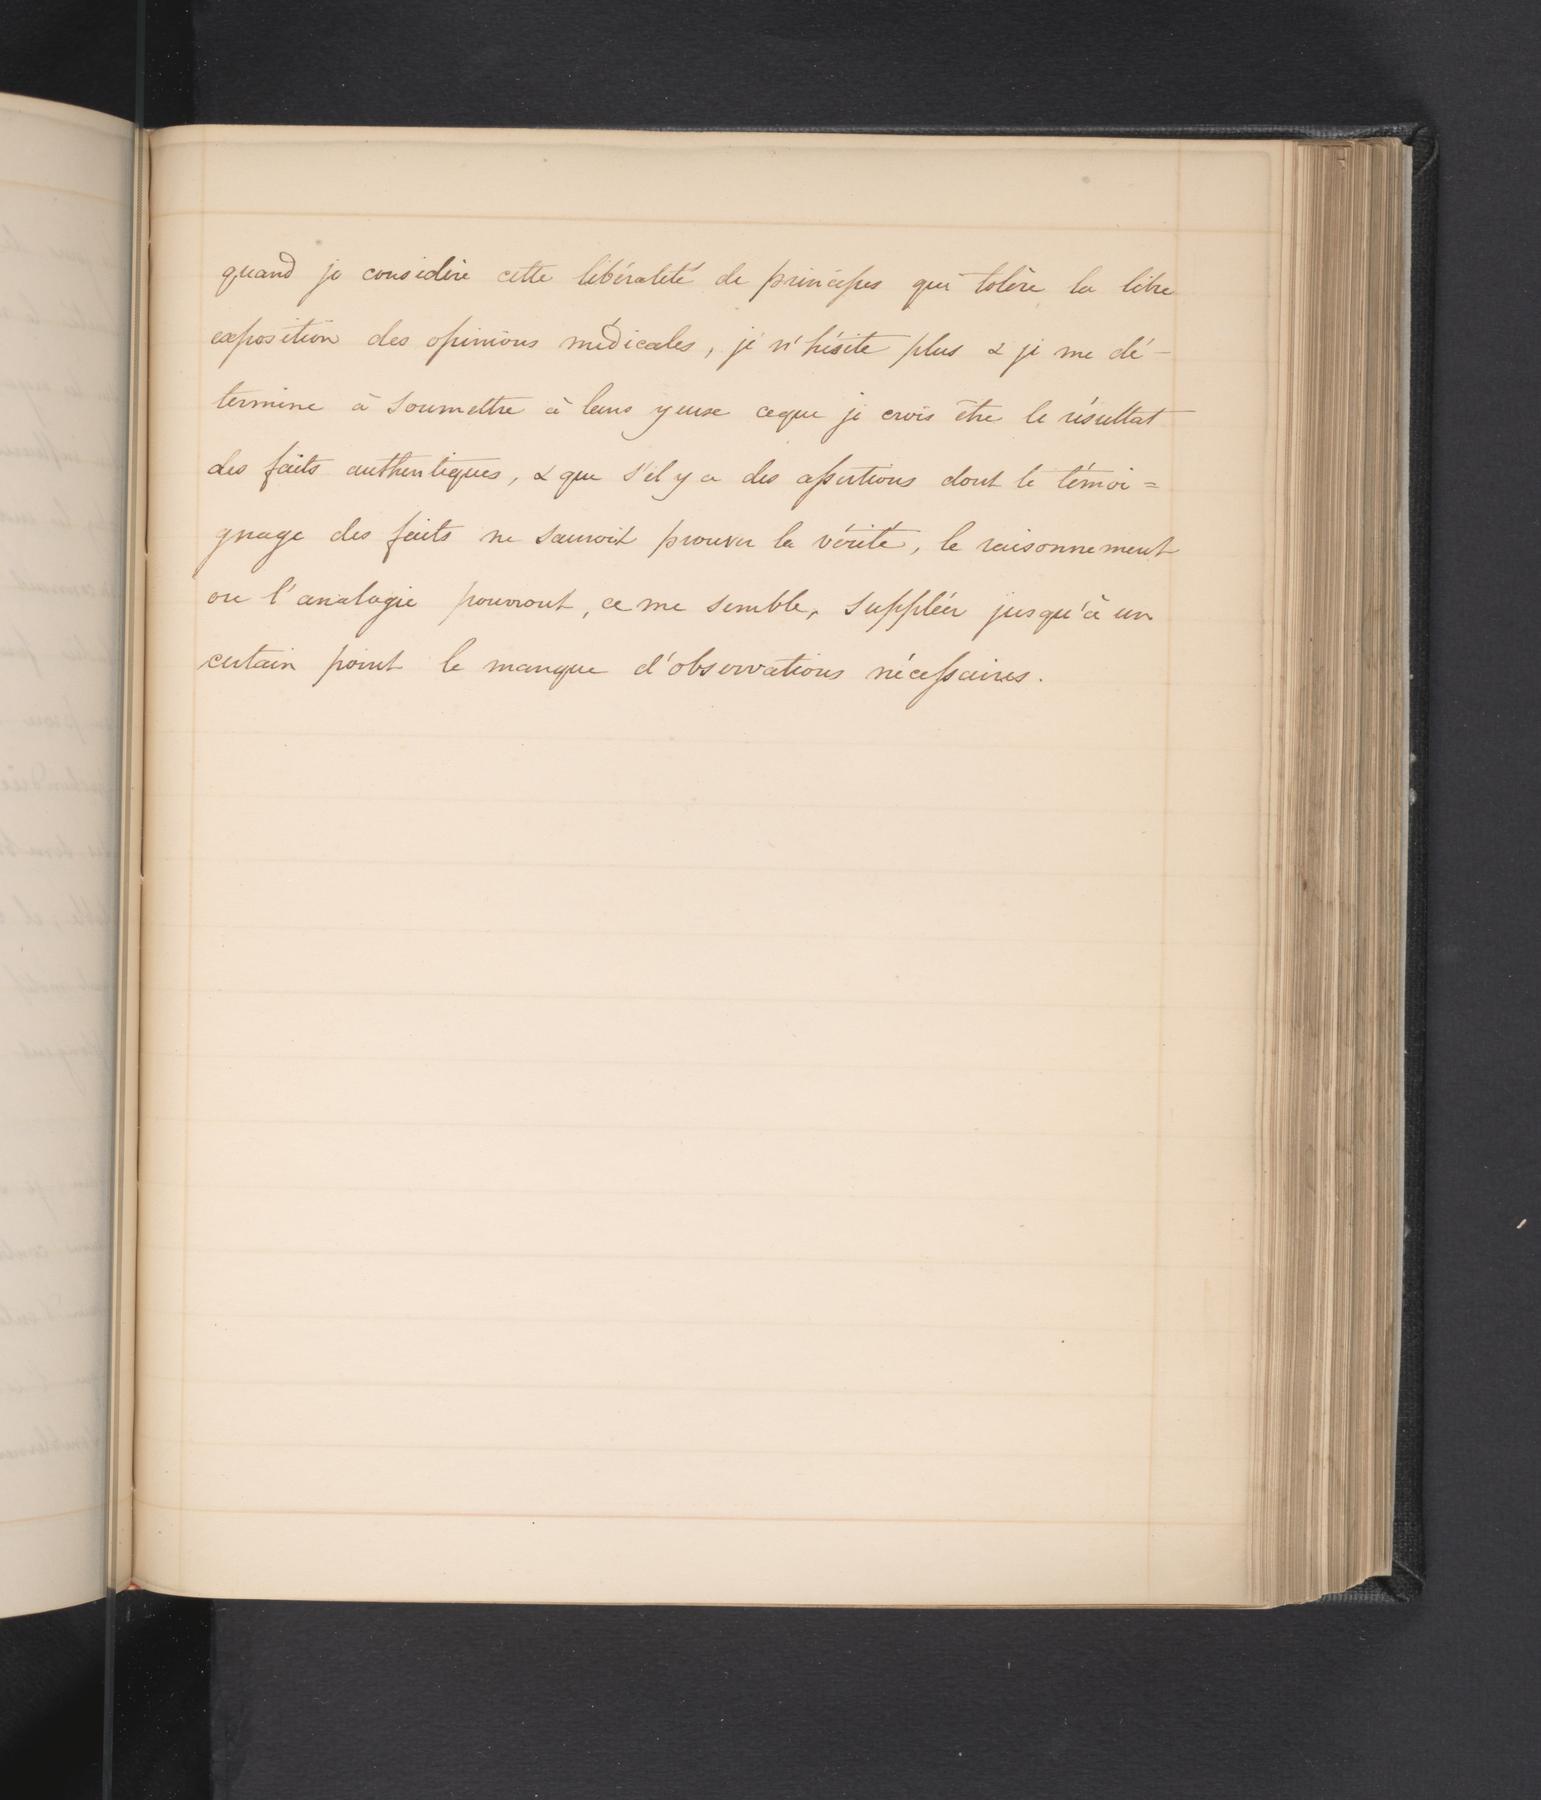 quand je considère cette libéralité de principes qui tolère la libre
exposition des opinions médicales, je n'hésite plus & je me dé-
termine à soumettre à leurs yeux ceque je crois être le résultat
des faits authentiques, & que s'il y a des assertions dont le témoi=
gnage des faits ne sauroit prouver la vérité, le raisonnement
ou l'analogie pourront, ce me semble, suppléer jusqu'à un
certain point le manque d'observations nécessaires.